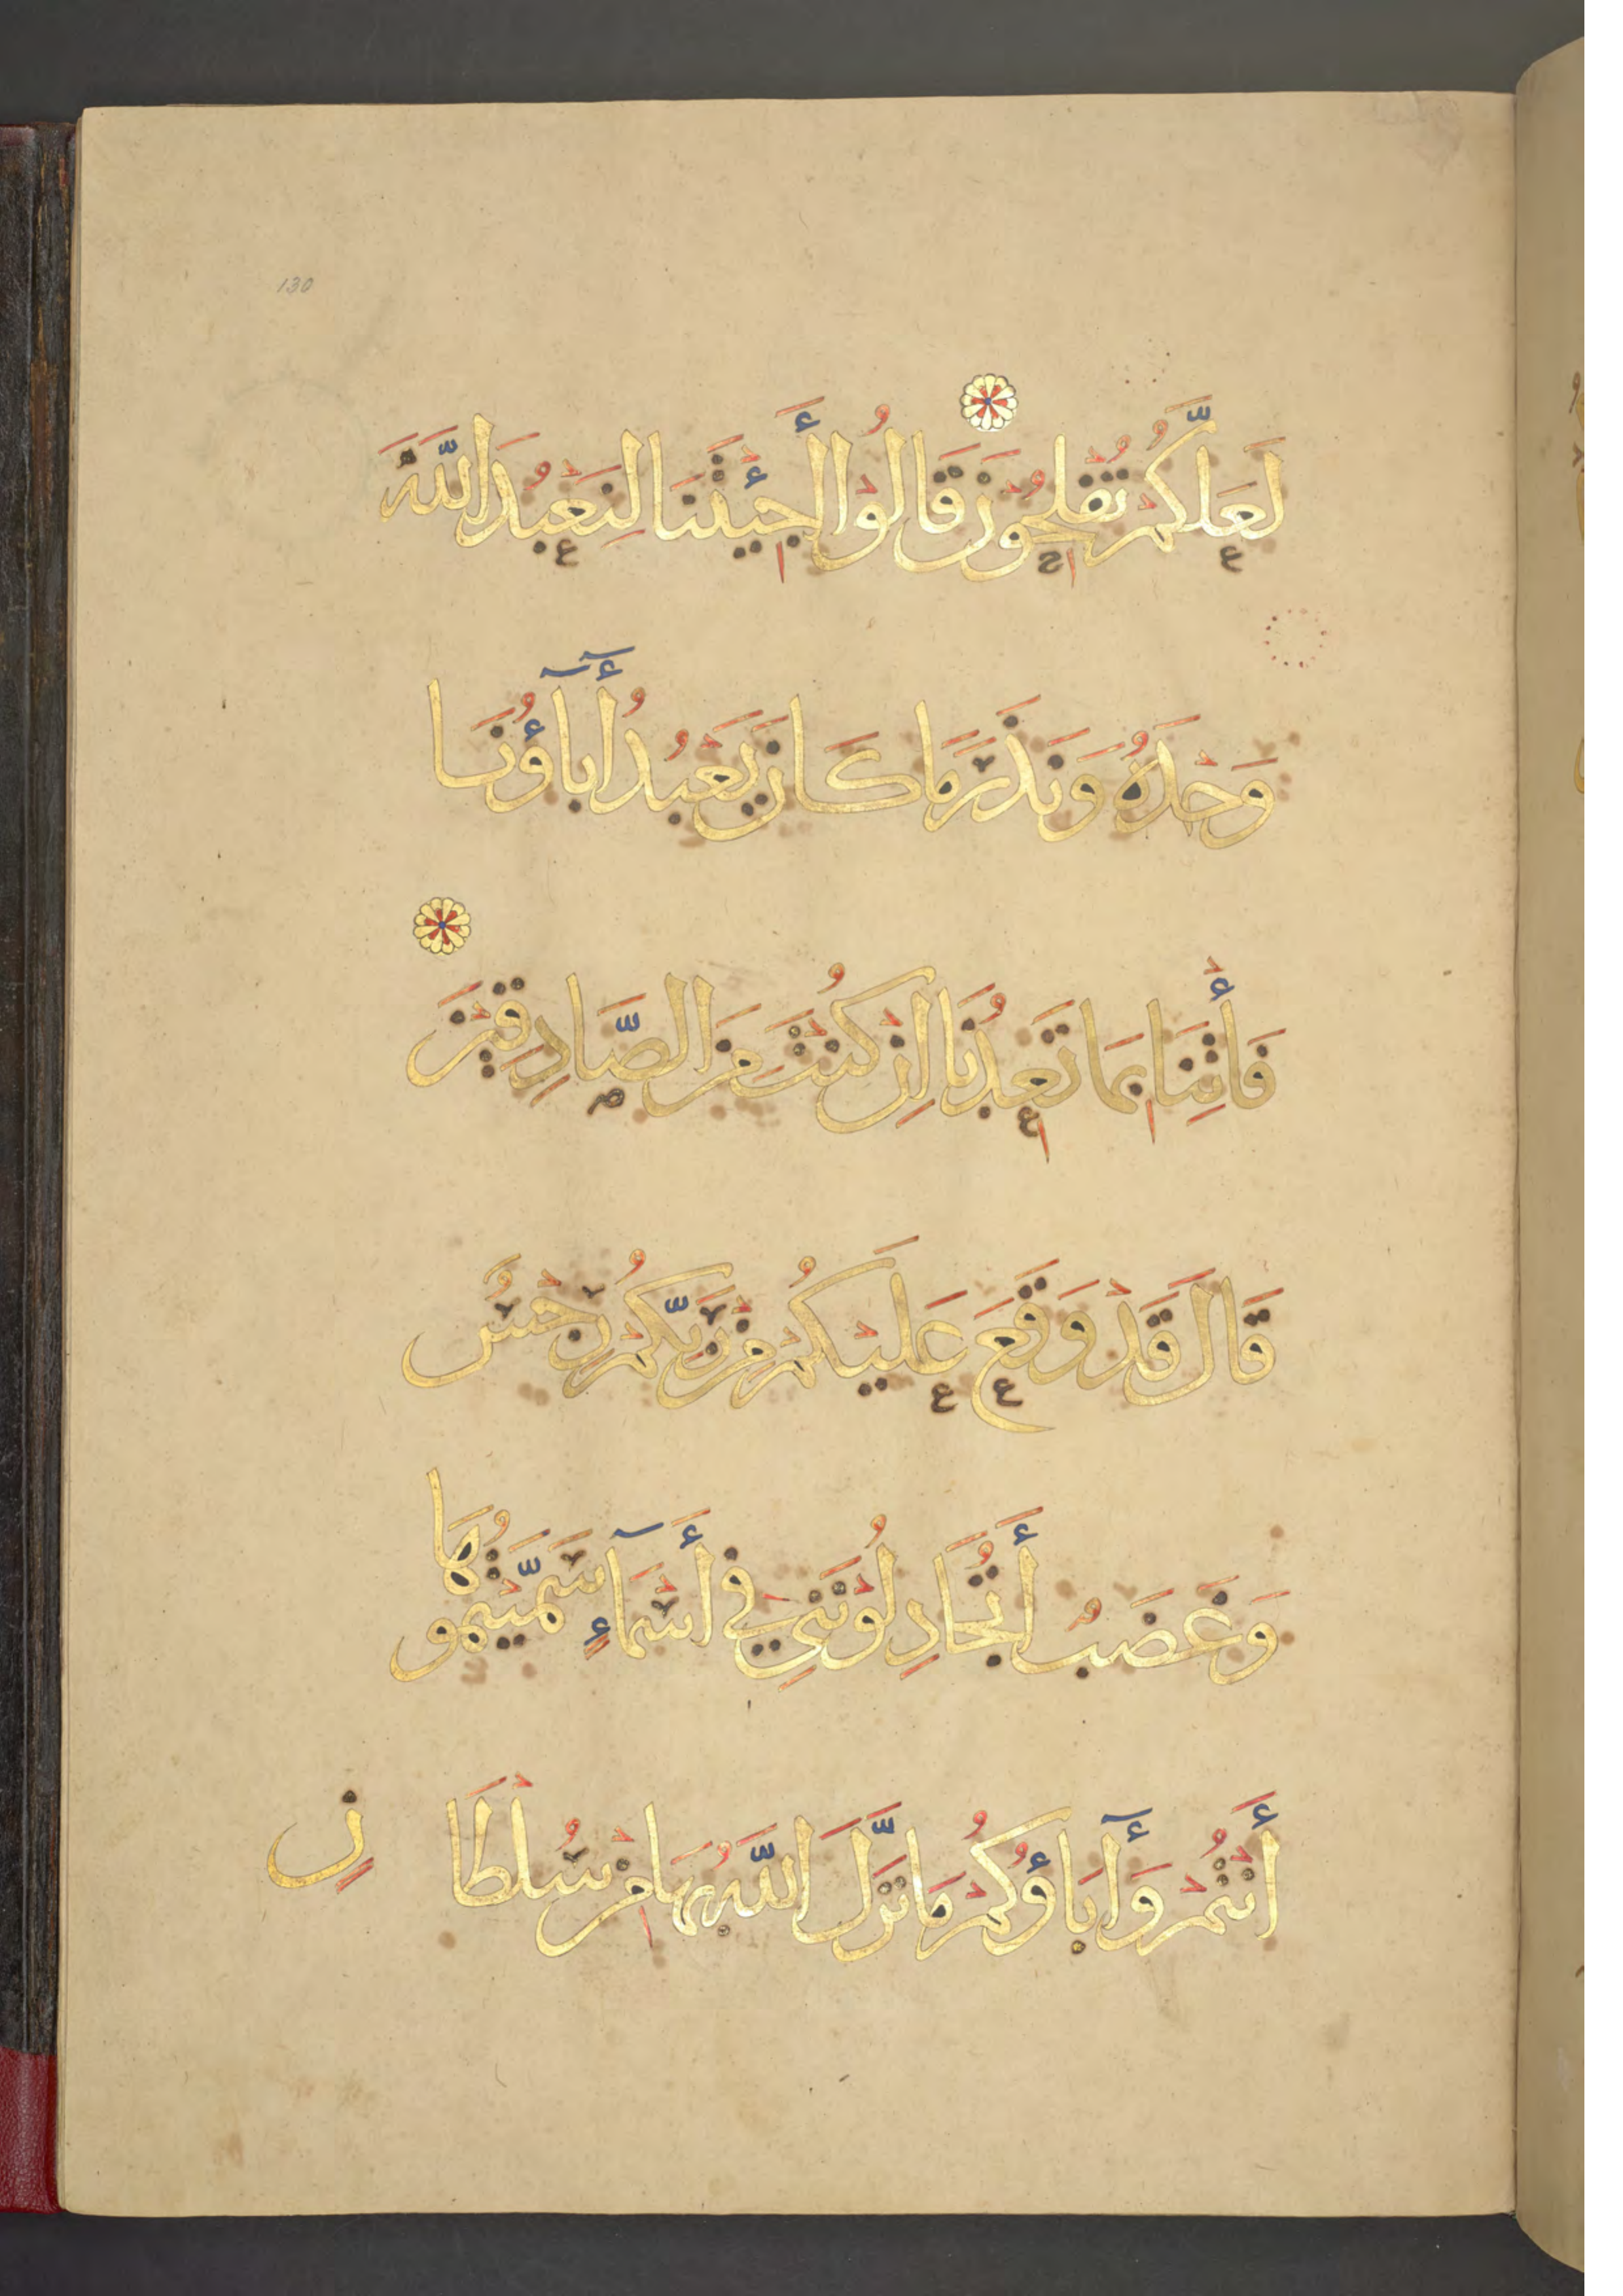 130
لَعَلَّكُمْ تُفْلِحُونَ قَالُوْا أَجِئْتَنَا لِنَعْبُدَ اللَّهَ
وَحْدَهُ وَنَذَرَ مَا كَانَ يَعْبُدُ أٓبَآؤُنَا
فَأْتِنَا بِمَا تَعِدُنَا اِنْ كُنْتَ مِنَ الصَّادِقِيْنَ
قَالَ قَدْ وَقَعَ عَلَيْكُمْ مِنْ رَبِّكُمْ رِجْسٌ
وَغَضَبٌ أَتُجَادِلُوْنَنِيْ فِيْ أَسْمَآءٍ سَمَّيْتُمُوهَا
أَنْتُمْ وَأٓبَاؤُكُمْ مَا نَزَّلَ اللَّهُ بِهَا مِنْ سُلْطَانٍ